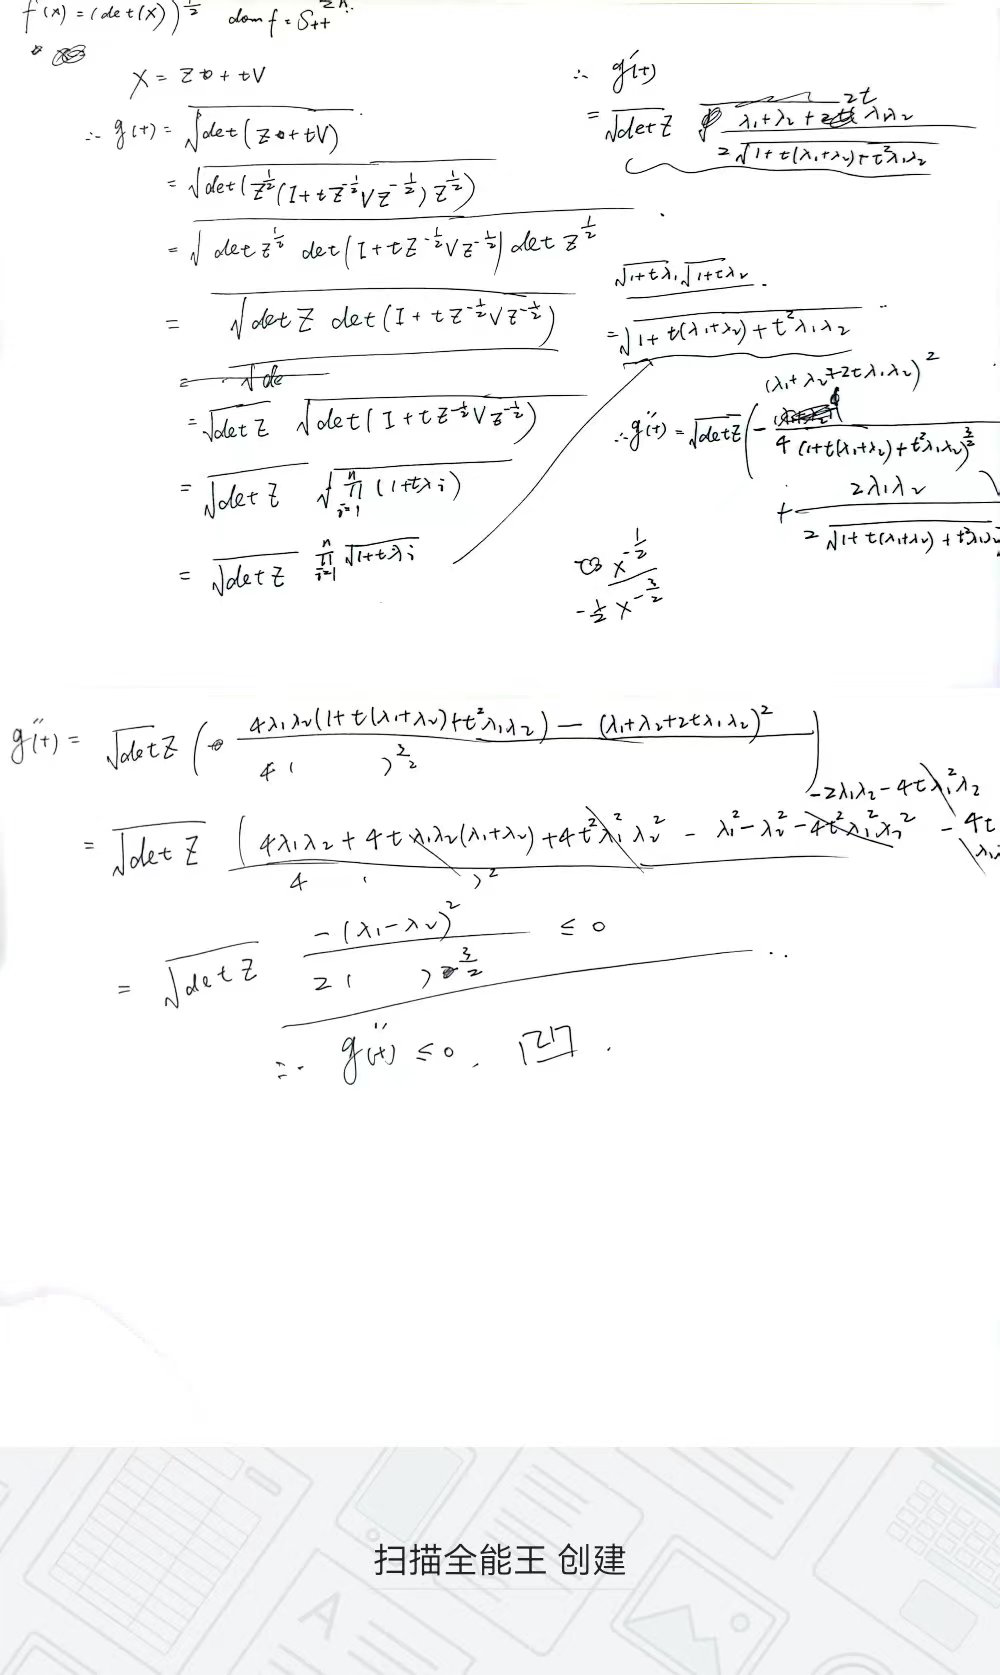 f(x) = (det(X))^{1/2} dom f = S_{++}
X = Z + tV
∴ g(t) = √det(Z + tV)
= √det(Z^{1/2}(I + tZ^{-1/2}VZ^{-1/2})Z^{1/2})
= √det Z^{1/2} det(I + tZ^{-1/2}VZ^{-1/2}) det Z^{1/2}
= √det Z det(I + tZ^{-1/2}VZ^{-1/2})
= √de
= √det Z √det(I + tZ^{-1/2}VZ^{-1/2})
= √det Z √∏_{i=1}^{n}(1+tλi)
= √det Z ∏_{i=1}^{n} √1+tλi
∴ g'(t)
= √det Z (λ1+λ2+2tλ1λ2) / (2√1+t(λ1+λ2)+t²λ1λ2)
√1+tλ1 √1+tλ2
= √1+t(λ1+λ2)+t²λ1λ2
∴ g''(t) = √det Z ( - (λ1+λ2+2tλ1λ2)² / 4(1+t(λ1+λ2)+t²λ1λ2)^{3/2}
+ 2λ1λ2 / 2√1+t(λ1+λ2)+t²λ1λ2 )
x^{-1/2}
-1/2 x^{-3/2}
g''(t) = √det Z ( 4λ1λ2(1+t(λ1+λ2)+t²λ1λ2) - (λ1+λ2+2tλ1λ2)² / 4( )^{3/2} )
= √det Z ( 4λ1λ2 + 4tλ1λ2(λ1+λ2) + 4t²λ1²λ2² - λ1² - λ2² - 4t²λ1²λ2² - 2λ1λ2 - 4tλ1²λ2 - 4t / 4( )²
= √det Z -(λ1-λ2)² / 2( )^{3/2} ≤ 0
∴ g''(t) ≤ 0.
扫描全能王 创建